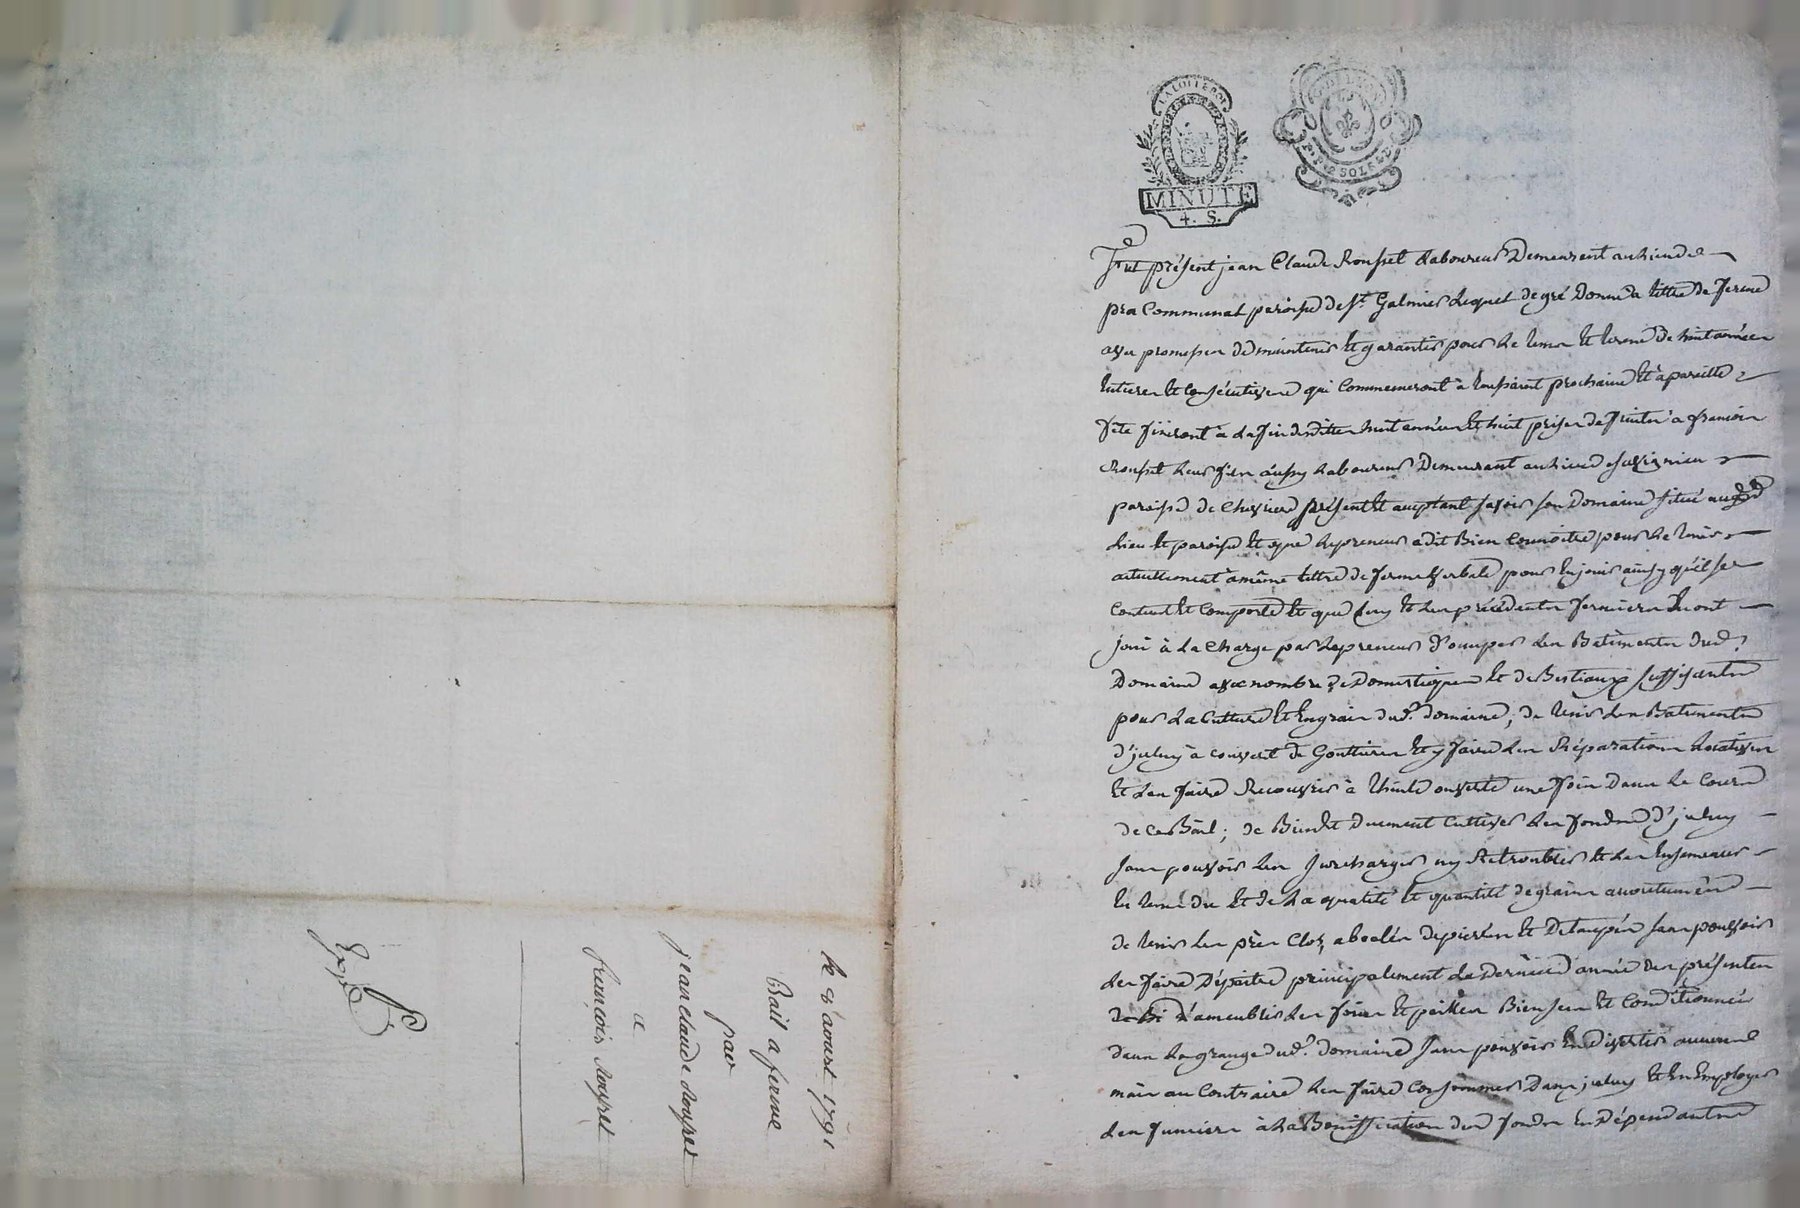 LA LOI LE ROI
MINUTE
4. S.
2 SOLS
Fut présent jean Claude Roussel Laboureur Demeurant au Lieu de
pra Communal paroisse de St. Galmier Lequel de gré Donne a tittre de ferme
avec promesse de maintenir Et garantir pour Le tems Et terme De huit années
Entieres Et Consécutives qui Commenceront à toussaint prochaine Et à pareille
fête finiront à La fin desdittes huit années Et huit prises de fruits à françois
Roussel aussy Laboureur Demeurant au Lieu de
paroisse De Chevrieres présent Et acceptant savoir son Domaine situé aud.
Lieu Et paroisse Et que Le preneur a dit Bien Connoitre pour Le tenir
actuellement à même tittre de ferme verbale pour En jouir ainsy qu'il se
Contient Et Comporte Et que Luy Et Les précédents fermiers En ont
joui à La Charge par Le preneur D'occuper Les Batiments dud.
Domaine avec nombre De Domestiques Et de Bestiaux suffisants
pour La Culture Et Engrais dud. domaine, de tenir Les Batiments
d'jceluy à couvert de Gouttieres Et y faire Les Réparations Locatives
Et Les faire Recouvrir à thuile ouverte une fois Dans Le Cours
de Ce Bail; de Bien Et Duement Cultiver Les fonds D'jceluy
sans pouvoir Les surcharger ny Retroubler Et Les Ensemencer
En tems du Et de La qualité Et quantité de grains accoutumées
de tenir Les près Clos, de pierres Et De taupes sans pouvoir
Les faire Dépaitre principalement La Derniere année Des présentes
D'ameublir Les foins Et pailles Bien secs Et Conditionnés
dans La grange dud. Domaine sans pouvoir En Divertir aucune
mais au Contraire Les faire Consommer Dans jceluy Et En Employer
Les fumiers à La Bonification des fonds En Dépendants
Le 2 aoust 1791
Bail a ferme
par
jean claude Roussel
a
françois Roussel
Exp.